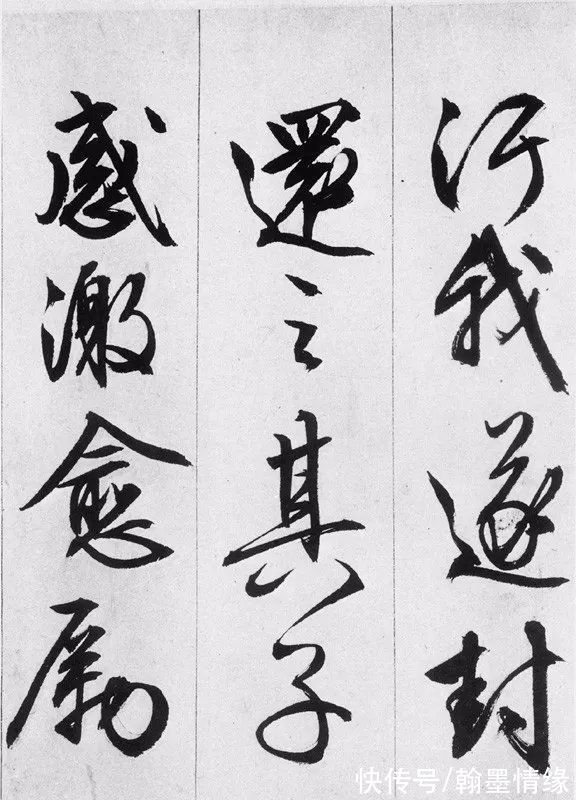 汙我遂封
還之其子
感激愈厲
快传号/翰墨情缘